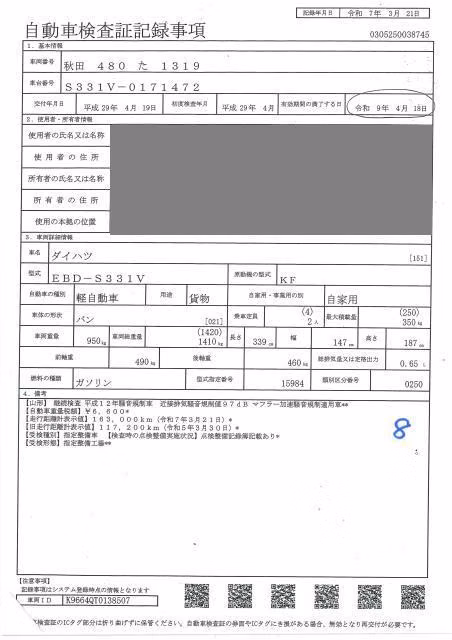 記録年月日 令和 7年 3月 21日
自動車検査証記録事項
0305250038745
1. 基本情報
車両番号 秋田 480 た 1319
車台番号 S331V-0171472
交付年月日 平成29年 4月 19日 初度検査年月 平成29年 4月 有効期間の満了する日 令和 9年 4月 18日
2. 使用者・所有者情報
使用者の氏名又は名称
使用者の住所
所有者の氏名又は名称
所有者の住所
使用の本拠の位置
3. 車両詳細情報
車名 ダイハツ [151]
型式 EBD-S331V 原動機の型式 KF
自動車の種別 軽自動車 用途 貨物 自家用・事業用の別 自家用
車体の形状 バン [021] 乗車定員 (4) 2人 最大積載量 (250) 350kg
車両重量 950kg 車両総重量 (1420) 1410kg 長さ 339cm 幅 147cm 高さ 187cm
前軸重 490kg 後軸重 460kg 総排気量又は定格出力 0.65L
燃料の種類 ガソリン 型式指定番号 15984 類別区分番号 0250
4. 備考
[山形] 継続検査 平成12年騒音規制車 近接排気騒音規制値97dB マフラー加速騒音規制適用車**
[自動車重量税額] ¥6,600*
[走行距離計表示値] 163,000km(令和7年3月21日)*
[旧走行距離計表示値] 117,200km(令和5年3月30日)*
[受検種別] 指定整備車 [検査時の点検整備実施状況] 点検整備記録簿記載あり*
[受検形態] 指定整備工場**
8
[注意事項]
記録事項はシステム登録時点の情報となります
車両ID K9664QT0138507
検査証のICタグ部分は折り曲げずに保管ください。自動車検査証の券面やICタグにき損がある場合、無効となり再交付が必要です。